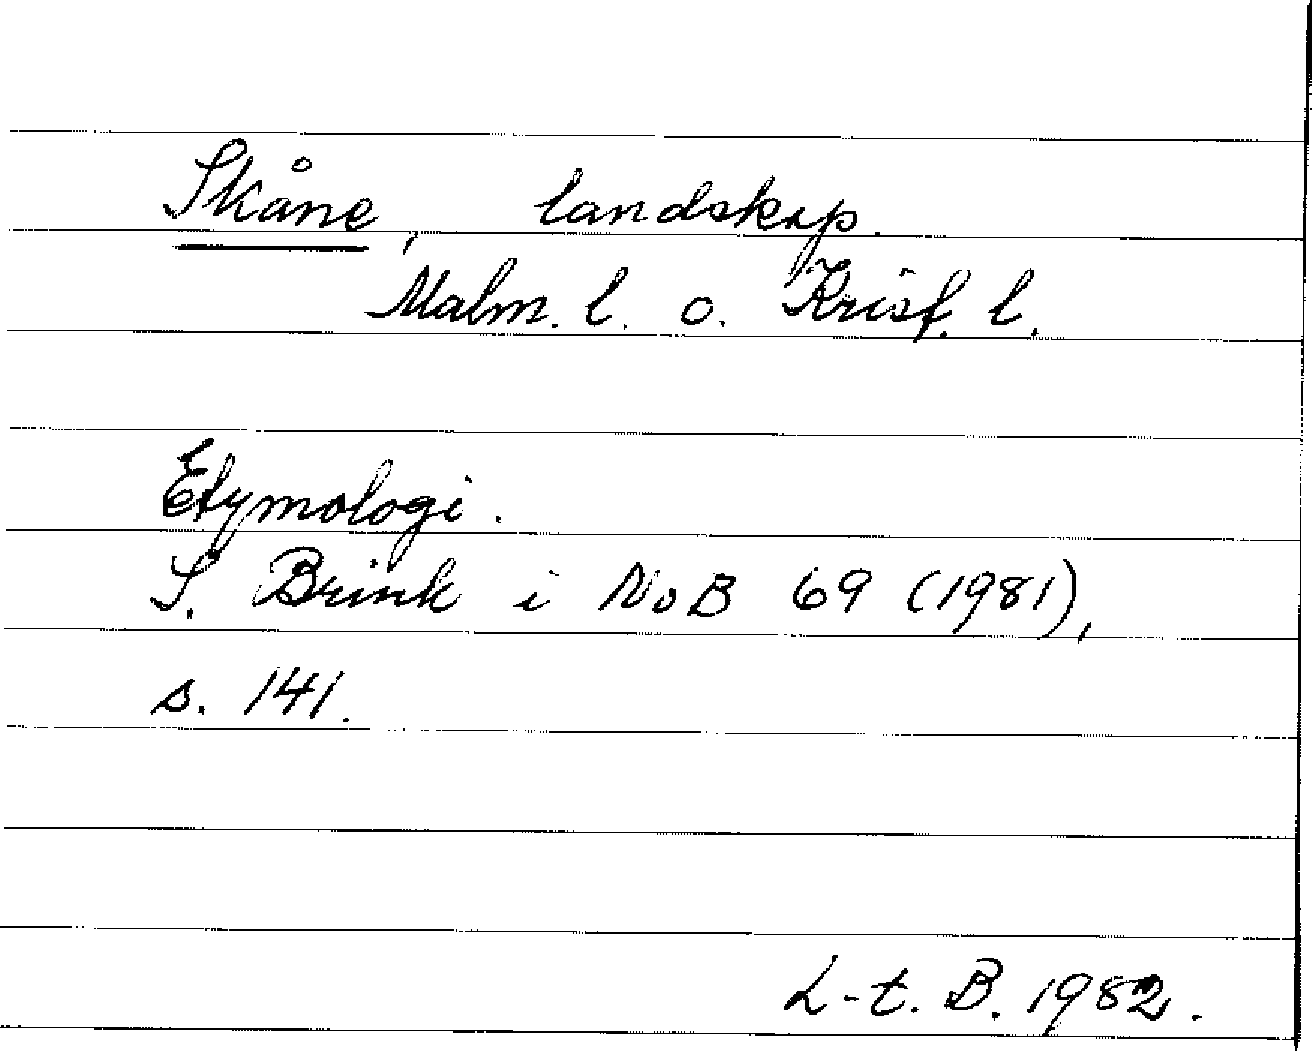 Skåne, landskap.
Malm. l. o. Krist. l.
Etymologi.
S. Brink i NoB 69 (1981),
s. 141.
L-t. B. 1982.